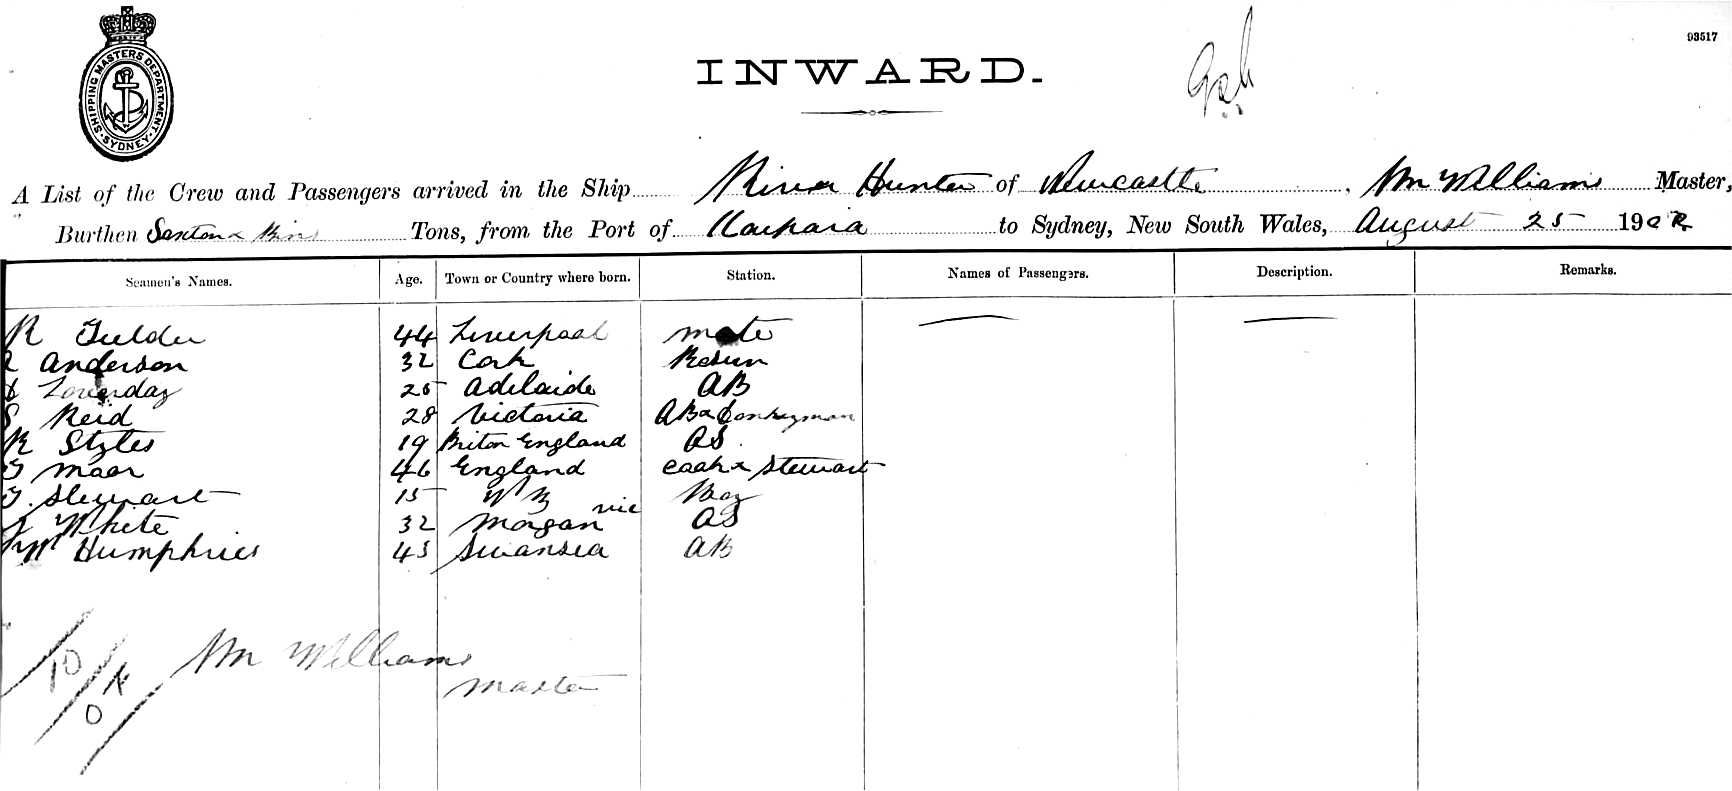 SHIPPING MASTERS DEPARTMENT. SYDNEY.
93517
INWARD.
A List of the Crew and Passengers arrived in the Ship River Hunter of Newcastle, Wm Williams Master,
Burthen Tons, from the Port of Kaipara to Sydney, New South Wales, August 25 1902
Seamen's Names. Age. Town or Country where born. Station. Names of Passengers. Description. Remarks.
R 44 Liverpool Mate
Anderson 32 Cork Bosun
Loverday 25 Adelaide AB
S Reid 28 Victoria AB & Donkeyman
R Styles 19 Briton England OS
Moor 46 England Cook & Stewart
Stewart 15 N Z Boy
White 32 Morgan Vic OS
Wm Humphries 43 Swansea AB
10
OK
Wm Williams
Master